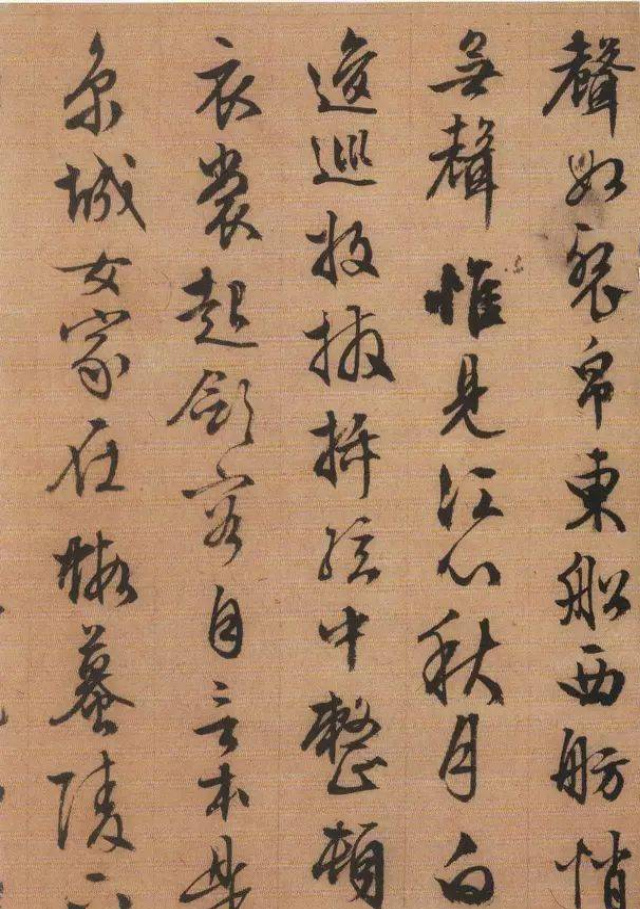 聲如裂帛東船西舫悄
無聲惟見江心秋月白
逡巡收撥插絃中整頓
衣裳起斂容自言本是
京城女家在蝦蟇陵下